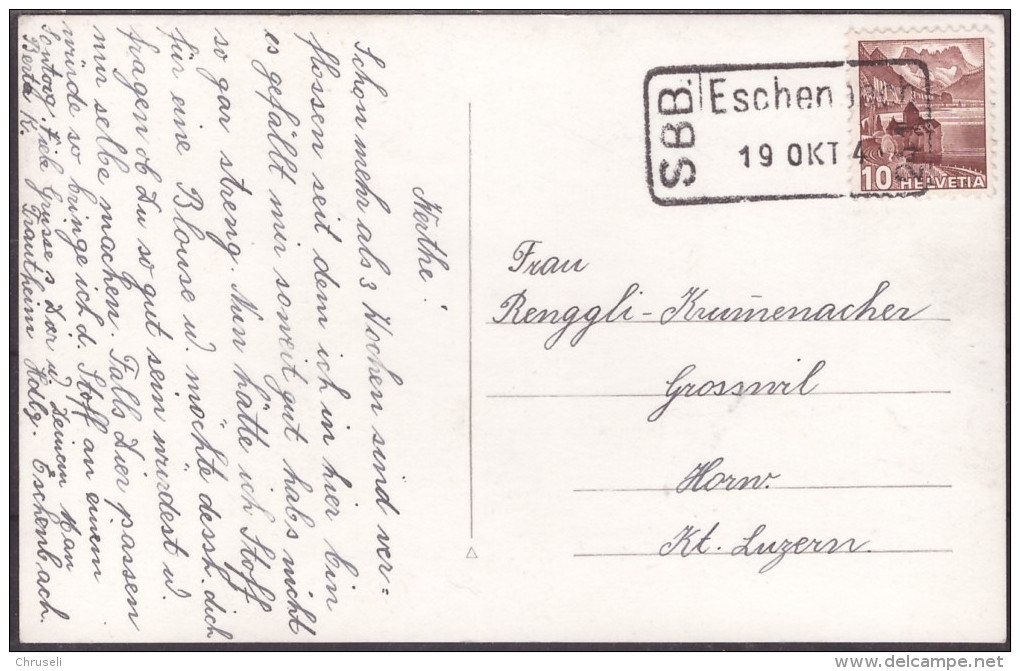 Werthe!
Schon mehr als 3 Wochen sind ver=
flossen seit dem ich in hier bin
es gefällt mir soweit gut habs nicht
so gar streng. Nun hätte ich Stoff
für eine Blouse u. möchte dessh. dich
fragen ob Du so gut sein würdest u.
mir selbe machen. Falls Dier passen
würde so bringe ich d. Stoff an einem
Sontag. Frohe Grüsse s Dier u Deinem Man
Berta K. Frautheim Hdlg. Eschenbach.
SBB. Eschen
19 OKT 4
10 HELVETIA
Frau
Renggli-Krum̅enacher
Grosswil
Horw.
Kt. Luzern.
Chruseli
delcampe.net